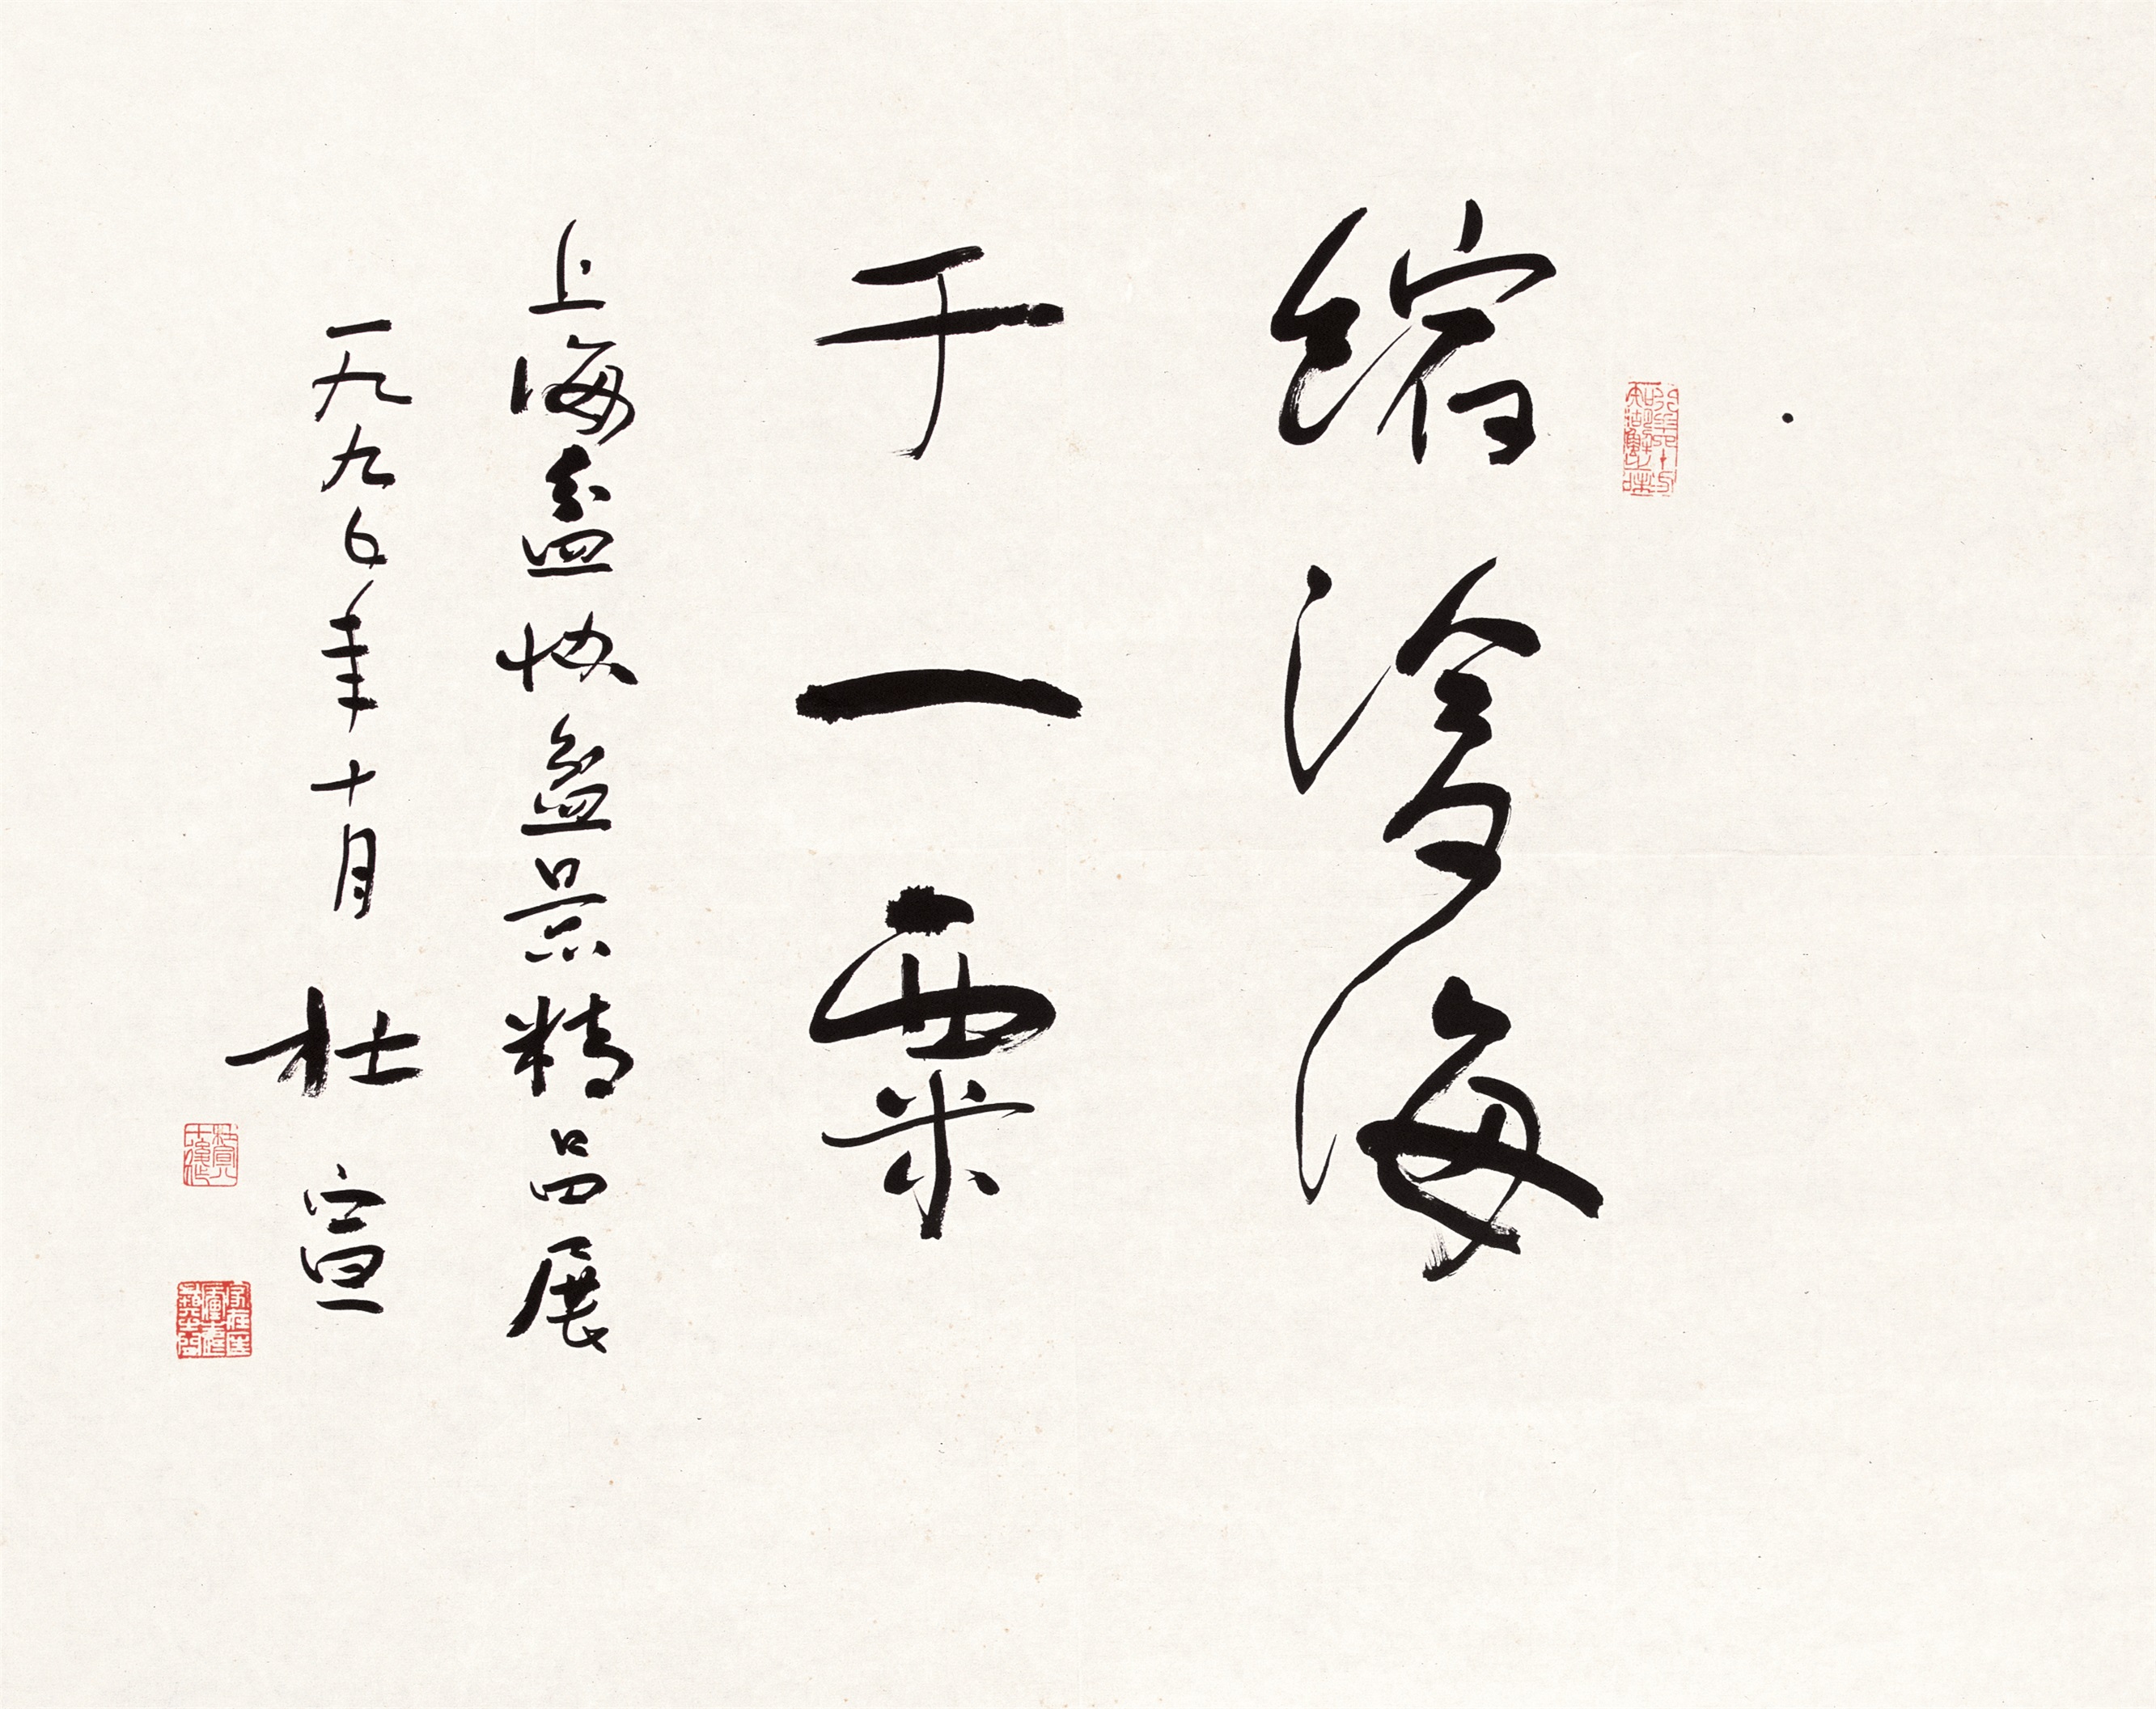 缩滄海
于一粟
上海盆协盆景精品展
一九九〇年十月 杜宣